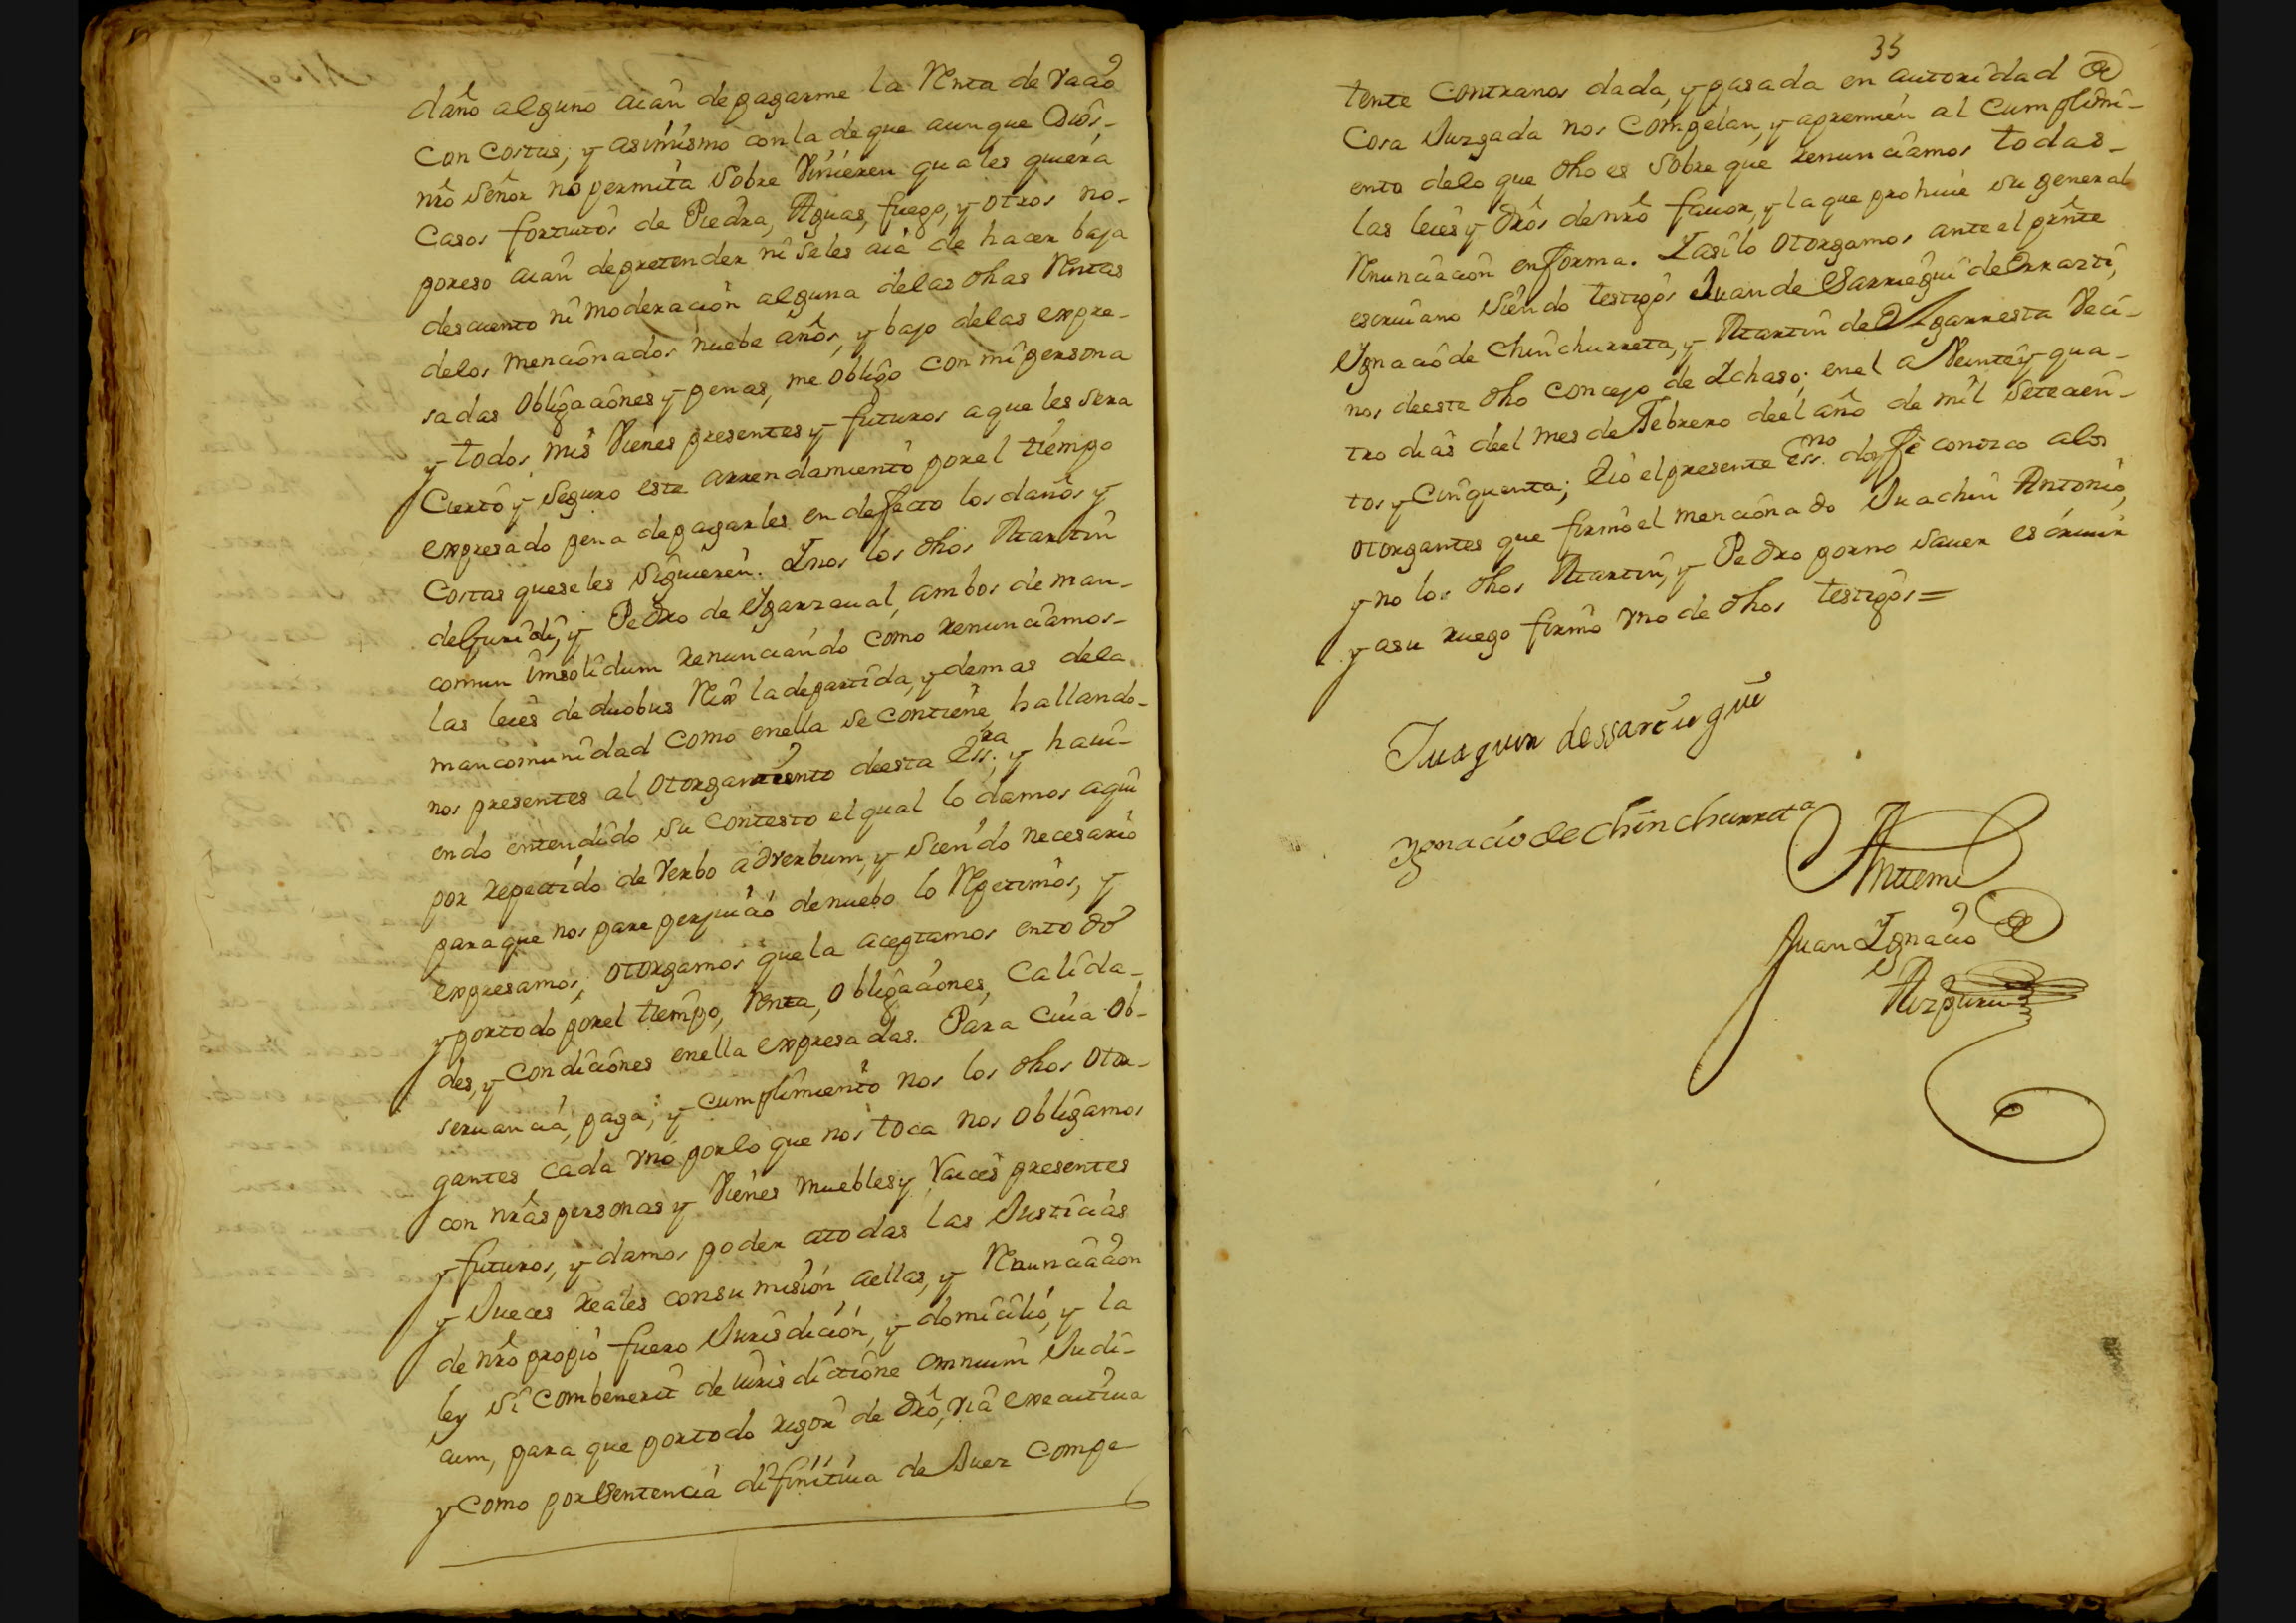 daño alguno aian de pagarme la Renta de vacio
con costas; y asimismo con la de que aunque Dios-
nrô señor no permita sobre vinieren quales quiera
Casos fortuitos de Piedra, Aguas, fuego, y otros no-
por eso aian de pretender ni se les aia de hacer baja
descuento ni moderacion alguna de las dhas Rentas
de los mencionados nuebe años, y bajo de las expre-
sadas obligaciones y penas, me obligo con mi persona
y todos mis vienes presentes y futuros a que les sera
Cierto y seguro este arrendamiento por el tiempo
expresado pena de pagarles en defecto los daños y
Costas que se les siguieren. Y nos los dhos Martin
de Guridi, y Pedro de Ygarzaual, ambos de man-
comun imsolidum renunciando como renunciamos-
las leies de duobus Rex la de partida, y demas de la
mancomunidad como en ella se contiene, hallando-
nos presentes al otorgamiento de esta Ess.ra y haui-
endo entendido su contesto el qual lo damos aqui
por repectido de verbo adverbum, y siendo necesario
para que nos pare perjuicio de nuebo lo Repetimos, y
expresamos; otorgamos que la aceptamos en todo
y por todo por el tiempo, Renta, obligaciones, Calida-
des, y Condiciones en ella expresadas. Para cuia ob-
seruancia, paga, y cumplimiento nos los dhos otor-
gantes cada vno por lo que nos toca nos obligamos
con nrâs personas y vienes muebles y Raices presentes
y futuros, y damos poder a todas las Justicias
y Jueces reales con sumision a ellas, y Renunciacion
de nrô propio fuero Jurisdicion, y domicilio, y la
ley si combenerit de iurisdictione omnium Judi-
cum, para que por todo rigor de drô, via executiua
y Como por sentencia difinitiua de Juez Compe
35
tente contranos dada, y pasada en autoridad de
Cosa Juzgada nos compelan, y apremien al Cumplimi-
ento de lo que dho es sobre que renunciamos todas-
las leies y drôs de nrô fauor, y la que prohiuie su general
Renunciacion en forma. Y asi lo otorgamos ante el prẽnte
escriuano siendo testigos Juan de Sarriegui de Errazti,
Ygnacio de Chinchurreta, y Martin de Ygarresta veci-
nos de este dho concejo de Ychaso; en el a veinte y qua-
tro dias deel mes de Febrero deel año de mil setecien-
tos y Cinquenta; E io el presente Ess.no doy fe conozco a los
otorgantes que firmó el mencionado Juachin Antonio,
y no los dhos Martin, y Pedro por no sauer escriuir
y a su ruego firmó vno de dhos testigos=
Juaquin de ssarriegui
Ygnacio de Chinchurreta
Antemi
Juan Ygnacio de
Aizpuru